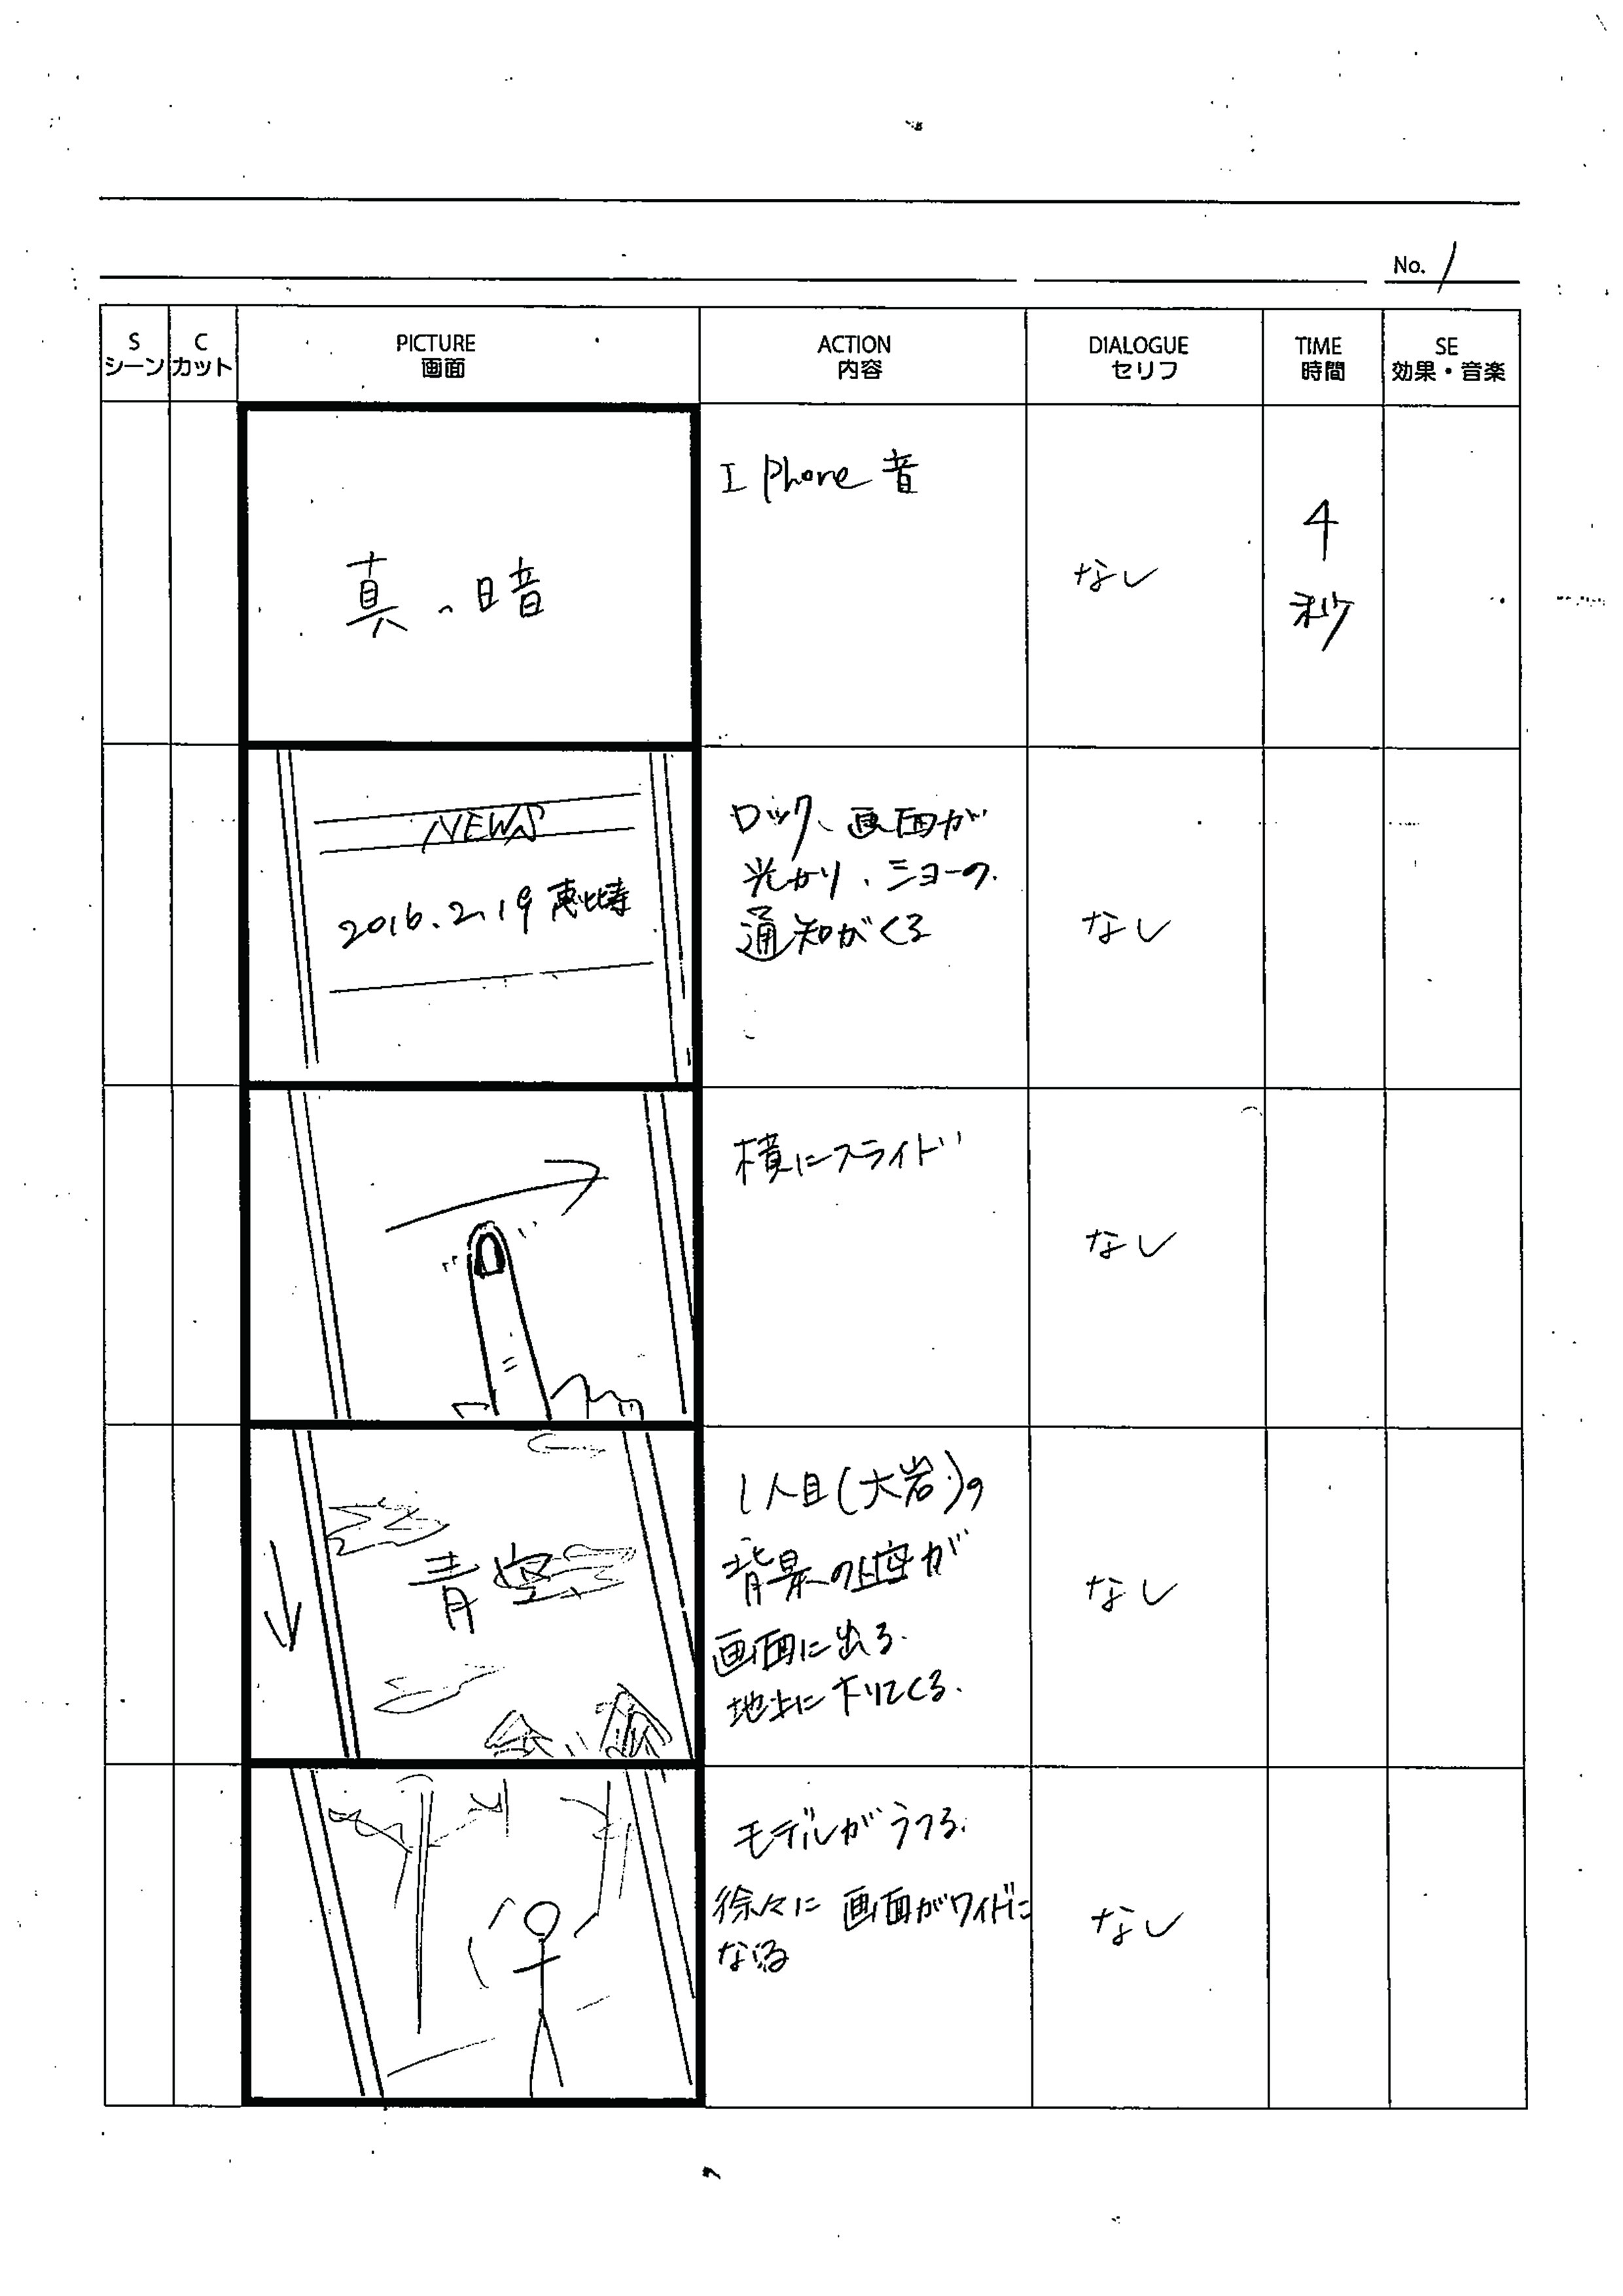 No. 1
S シーン
C カット
PICTURE 画面
ACTION 内容
DIALOGUE セリフ
TIME 時間
SE 効果・音楽
真っ暗
I Phone 音
なし
4
秒
NEWS
2016.2.19 恵比寿
ロック、画面が
光かり、ショーの
通知がくる
なし
横にスライド
なし
青空
1人目(大岩)の
背景の
画面に出る.
地上に下りてくる.
なし
モデルがうつる.
徐々に 画面がワイドに
なる
なし